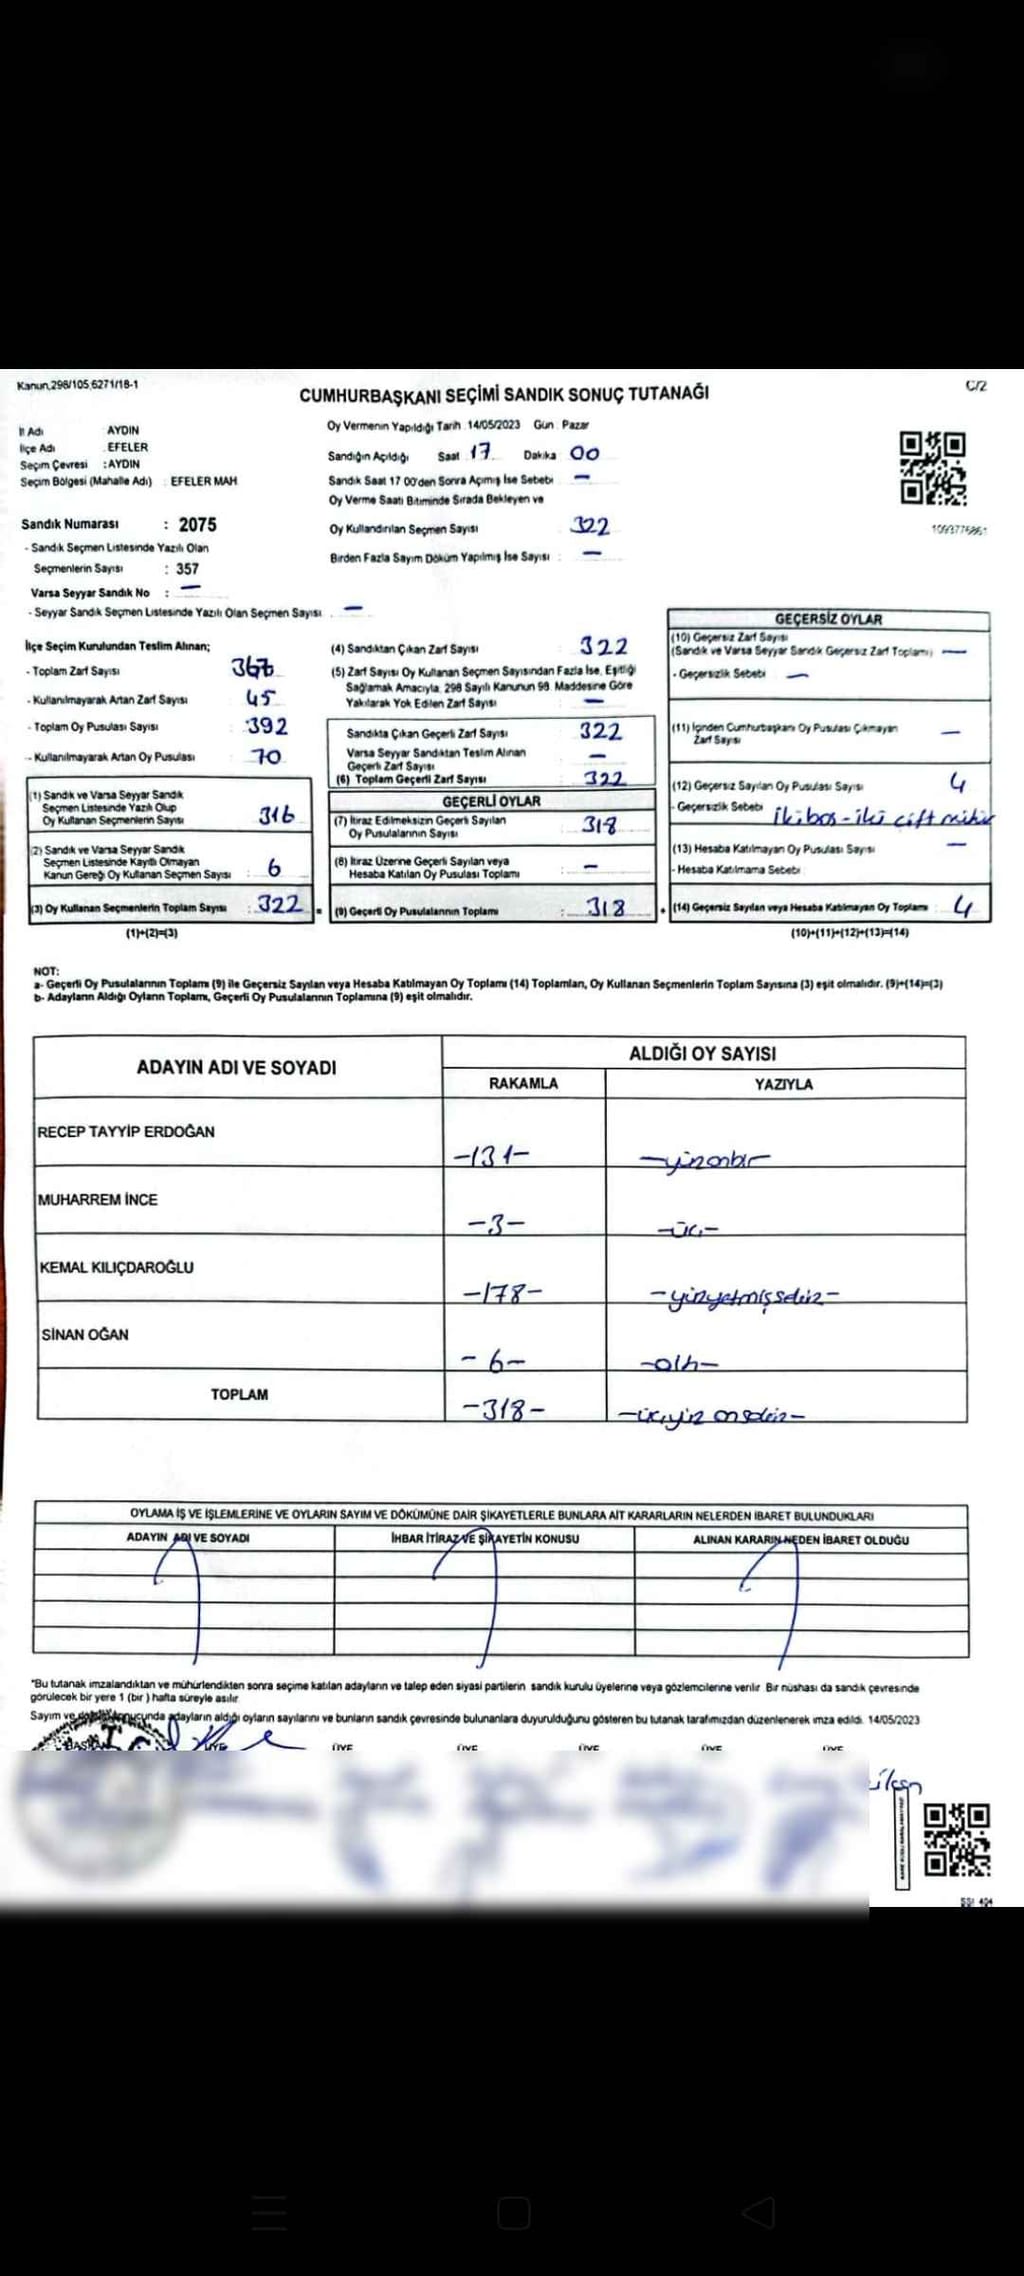 Kanun,298/105,6271/18-1
C/2
CUMHURBAŞKANI SEÇİMİ SANDIK SONUÇ TUTANAĞI
İl Adı : AYDIN
İlçe Adı : EFELER
Seçim Çevresi : AYDIN
Seçim Bölgesi (Mahalle Adı) : EFELER MAH
Oy Vermenin Yapıldığı Tarih : 14/05/2023 Gün : Pazar
Sandığın Açıldığı Saat 17 Dakika 00
Sandık Saat 17 00'den Sonra Açımış İse Sebebi —
Oy Verme Saati Bitiminde Sırada Bekleyen ve
Oy Kullandırılan Seçmen Sayısı : 322
Birden Fazla Sayım Döküm Yapılmış İse Sayısı : —
1093776861
Sandık Numarası : 2075
- Sandık Seçmen Listesinde Yazılı Olan
Seçmenlerin Sayısı : 357
Varsa Seyyar Sandık No : —
- Seyyar Sandık Seçmen Listesinde Yazılı Olan Seçmen Sayısı : —
İlçe Seçim Kurulundan Teslim Alınan;
- Toplam Zarf Sayısı 367
- Kullanılmayarak Artan Zarf Sayısı 45
- Toplam Oy Pusulası Sayısı : 392
- Kullanılmayarak Artan Oy Pusulası : 70
(1) Sandık ve Varsa Seyyar Sandık
Seçmen Listesinde Yazılı Olup
Oy Kullanan Seçmenlerin Sayısı : 316
(2) Sandık ve Varsa Seyyar Sandık
Seçmen Listesinde Kayıtlı Olmayan
Kanun Gereği Oy Kullanan Seçmen Sayısı : 6
(3) Oy Kullanan Seçmenlerin Toplam Sayısı : 322 =
(1)+(2)=(3)
(4) Sandıktan Çıkan Zarf Sayısı : 322
(5) Zarf Sayısı Oy Kullanan Seçmen Sayısından Fazla İse, Eşitliği
Sağlamak Amacıyla, 298 Sayılı Kanunun 98. Maddesine Göre
Yakılarak Yok Edilen Zarf Sayısı : —
Sandıkta Çıkan Geçerli Zarf Sayısı : 322
Varsa Seyyar Sandıktan Teslim Alınan
Geçerli Zarf Sayısı : —
(6) Toplam Geçerli Zarf Sayısı : 322
GEÇERLİ OYLAR
(7) İtiraz Edilmeksizin Geçerli Sayılan
Oy Pusulalarının Sayısı : 318
(8) İtiraz Üzerine Geçerli Sayılan veya
Hesaba Katılan Oy Pusulası Toplamı : —
(9) Geçerli Oy Pusulalarının Toplamı : 318 +
GEÇERSİZ OYLAR
(10) Geçersiz Zarf Sayısı
(Sandık ve Varsa Seyyar Sandık Geçersiz Zarf Toplamı) : —
- Geçersizlik Sebebi : —
(11) İçinden Cumhurbaşkanı Oy Pusulası Çıkmayan
Zarf Sayısı —
(12) Geçersiz Sayılan Oy Pusulası Sayısı 4
- Geçersizlik Sebebi : iki boş - iki çift mühür
(13) Hesaba Katılmayan Oy Pusulası Sayısı —
- Hesaba Katılmama Sebebi
(14) Geçersiz Sayılan veya Hesaba Katılmayan Oy Toplamı : 4
(10)+(11)+(12)+(13)=(14)
NOT:
a- Geçerli Oy Pusulalarının Toplamı (9) ile Geçersiz Sayılan veya Hesaba Katılmayan Oy Toplamı (14) Toplamları, Oy Kullanan Seçmenlerin Toplam Sayısına (3) eşit olmalıdır. (9)+(14)=(3)
b- Adayların Aldığı Oyların Toplamı, Geçerli Oy Pusulalarının Toplamına (9) eşit olmalıdır.
ADAYIN ADI VE SOYADI
ALDIĞI OY SAYISI
RAKAMLA YAZIYLA
RECEP TAYYİP ERDOĞAN -131- -yüzonbir-
MUHARREM İNCE -3- -üç-
KEMAL KILIÇDAROĞLU -178- -yüzyetmişsekiz-
SİNAN OĞAN -6- -altı-
TOPLAM -318- -üçyüz onsekiz-
OYLAMA İŞ VE İŞLEMLERİNE VE OYLARIN SAYIM VE DÖKÜMÜNE DAİR ŞİKAYETLERLE BUNLARA AİT KARARLARIN NELERDEN İBARET BULUNDUKLARI
ADAYIN ADI VE SOYADI İHBAR İTİRAZ VE ŞİKAYETİN KONUSU ALINAN KARARIN NEDEN İBARET OLDUĞU
"Bu tutanak imzalandıktan ve mühürlendikten sonra seçime katılan adayların ve talep eden siyasi partilerin sandık kurulu üyelerine veya gözlemcilerine verilir. Bir nüshası da sandık çevresinde
görülecek bir yere 1 (bir ) hafta süreyle asılır.
Sayım ve döküm sonucunda adayların aldığı oyların sayılarını ve bunların sandık çevresinde bulunanlara duyurulduğunu gösteren bu tutanak tarafımızdan düzenlenerek imza edildi. 14/05/2023
BAŞKAN ÜYE ÜYE ÜYE ÜYE ÜYE ÜYE
SSI 404